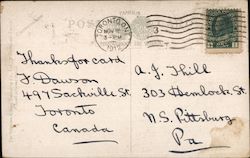 POST
TORONTO, ONT.
NOV
3 - PM
3
Thanks for card
F Dawson
497 Sackville St.
Toronto
Canada
A. J. Thill
303 Hemlock St.
N.S. Pittsburg
Pa